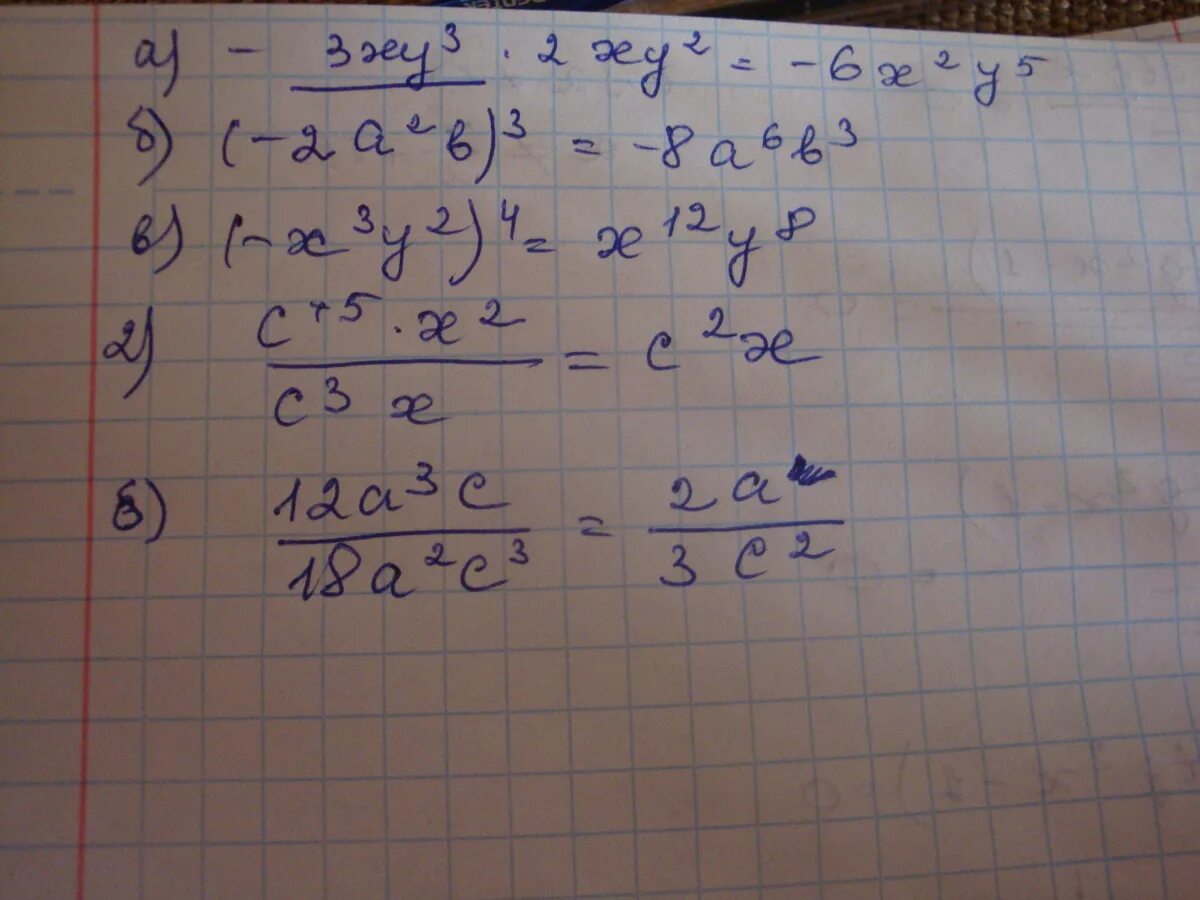 а) - 3xy³ · 2xy² = -6x²y⁵
б) (-2a²b)³ = -8a⁶b³
в) (-x³y²)⁴ = x¹²y⁸
г) c⁺⁵ · x² / c³ x = c²x
б) 12a³c / 18a²c³ = 2a / 3c²